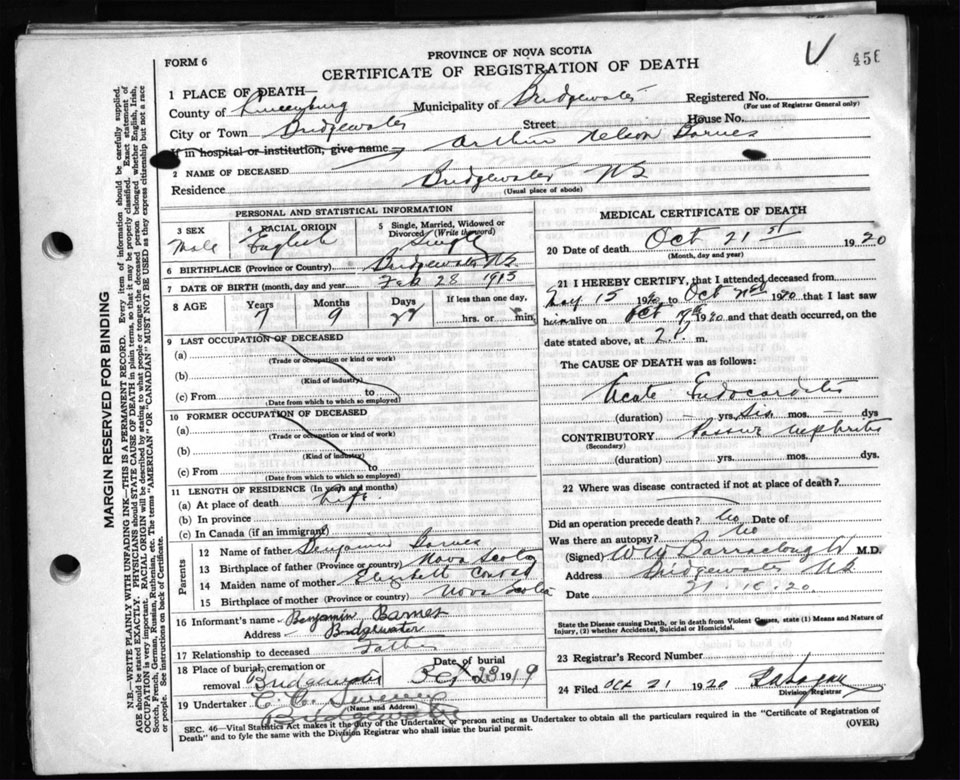 FORM 6
PROVINCE OF NOVA SCOTIA
CERTIFICATE OF REGISTRATION OF DEATH
V 456
1 PLACE OF DEATH—
County of Lunenburg Municipality of Bridgewater Registered No.
(For use of Registrar General only)
City or Town Bridgewater Street House No.
If in hospital or institution, give name
2 NAME OF DECEASED Arthur Nelson Barnes
Residence Bridgewater NS
(Usual place of abode)
PERSONAL AND STATISTICAL INFORMATION
3 SEX Male
4 RACIAL ORIGIN English
5 Single, Married, Widowed or Divorced (Write the word) Single
6 BIRTHPLACE (Province or Country) Bridgewater NS
7 DATE OF BIRTH (month, day and year) Feb 28 1913
8 AGE Years Months Days If less than one day,
7 9 22 hrs. or min.
9 LAST OCCUPATION OF DECEASED
(a)
(Trade or occupation or kind or work)
(b)
(Kind of industry)
(c) From to
(Date from which to which so employed)
10 FORMER OCCUPATION OF DECEASED
(a)
(Trade or occupation or kind of work)
(b)
(Kind of industry)
(c) From to
(Date from which to which so employed)
11 LENGTH OF RESIDENCE (In years and months)
(a) At place of death Life
(b) In province
(c) In Canada (if an immigrant)
Parents
12 Name of father Benjamin Barnes
13 Birthplace of father (Province or country) Nova Scotia
14 Maiden name of mother Elizabeth Conrad
15 Birthplace of mother (Province or country) Nova Scotia
16 Informant's name Benjamin Barnes
Address Bridgewater
17 Relationship to deceased Father
18 Place of burial, cremation or removal Bridgewater
Date of burial Oct 23 1919
19 Undertaker C. C.
(Name and Address)
Bridgewater
MEDICAL CERTIFICATE OF DEATH
20 Date of death Oct 21st 1920
(Month, day and year)
21 I HEREBY CERTIFY, that I attended deceased from
May 15 1920 to Oct 1920 that I last saw
him alive on Oct 1920 and that death occurred, on
date stated above, at 2 m.
The CAUSE OF DEATH was as follows:
Acute Endocarditis
(duration) – yrs. Six mos. – dys
CONTRIBUTORY Nephritis
(Secondary)
(duration) yrs. mos. dys.
22 Where was disease contracted if not at place of death?
Did an operation precede death? No Date of
Was there an autopsy? No
(Signed) Barraclough M.D.
Address Bridgewater NS
Date 21.10.20.
State the Disease causing Death, or in death from Violent Causes, state (1) Means and Nature of
Injury, (2) whether Accidental, Suicidal or Homicidal.
23 Registrar's Record Number
24 Filed Oct 21 1920
Division Registrar
SEC. 46—Vital Statistics Act makes it the duty of the Undertaker or person acting as Undertaker to obtain all the particulars required in the "Certificate of Registration of
Death" and to fyle the same with the Division Registrar who shall issue the burial permit.
(OVER)
MARGIN RESERVED FOR BINDING
N.B.—WRITE PLAINLY WITH UNFADING INK—THIS IS A PERMANENT RECORD. Every item of information should be carefully supplied.
AGE should be stated EXACTLY. PHYSICIANS should STATE CAUSE OF DEATH in plain terms, so that it may be properly classified. Exact statement of
OCCUPATION is very important. RACIAL ORIGIN will be described by stating to what people or tongue the deceased person belonged whether English, Irish,
Scotch, French, German, Russian, Ruthenian, etc. The terms "AMERICAN" or "CANADIAN" MUST NOT BE USED as they express citizenship but not a race
or people. See instructions on back of Certificate.